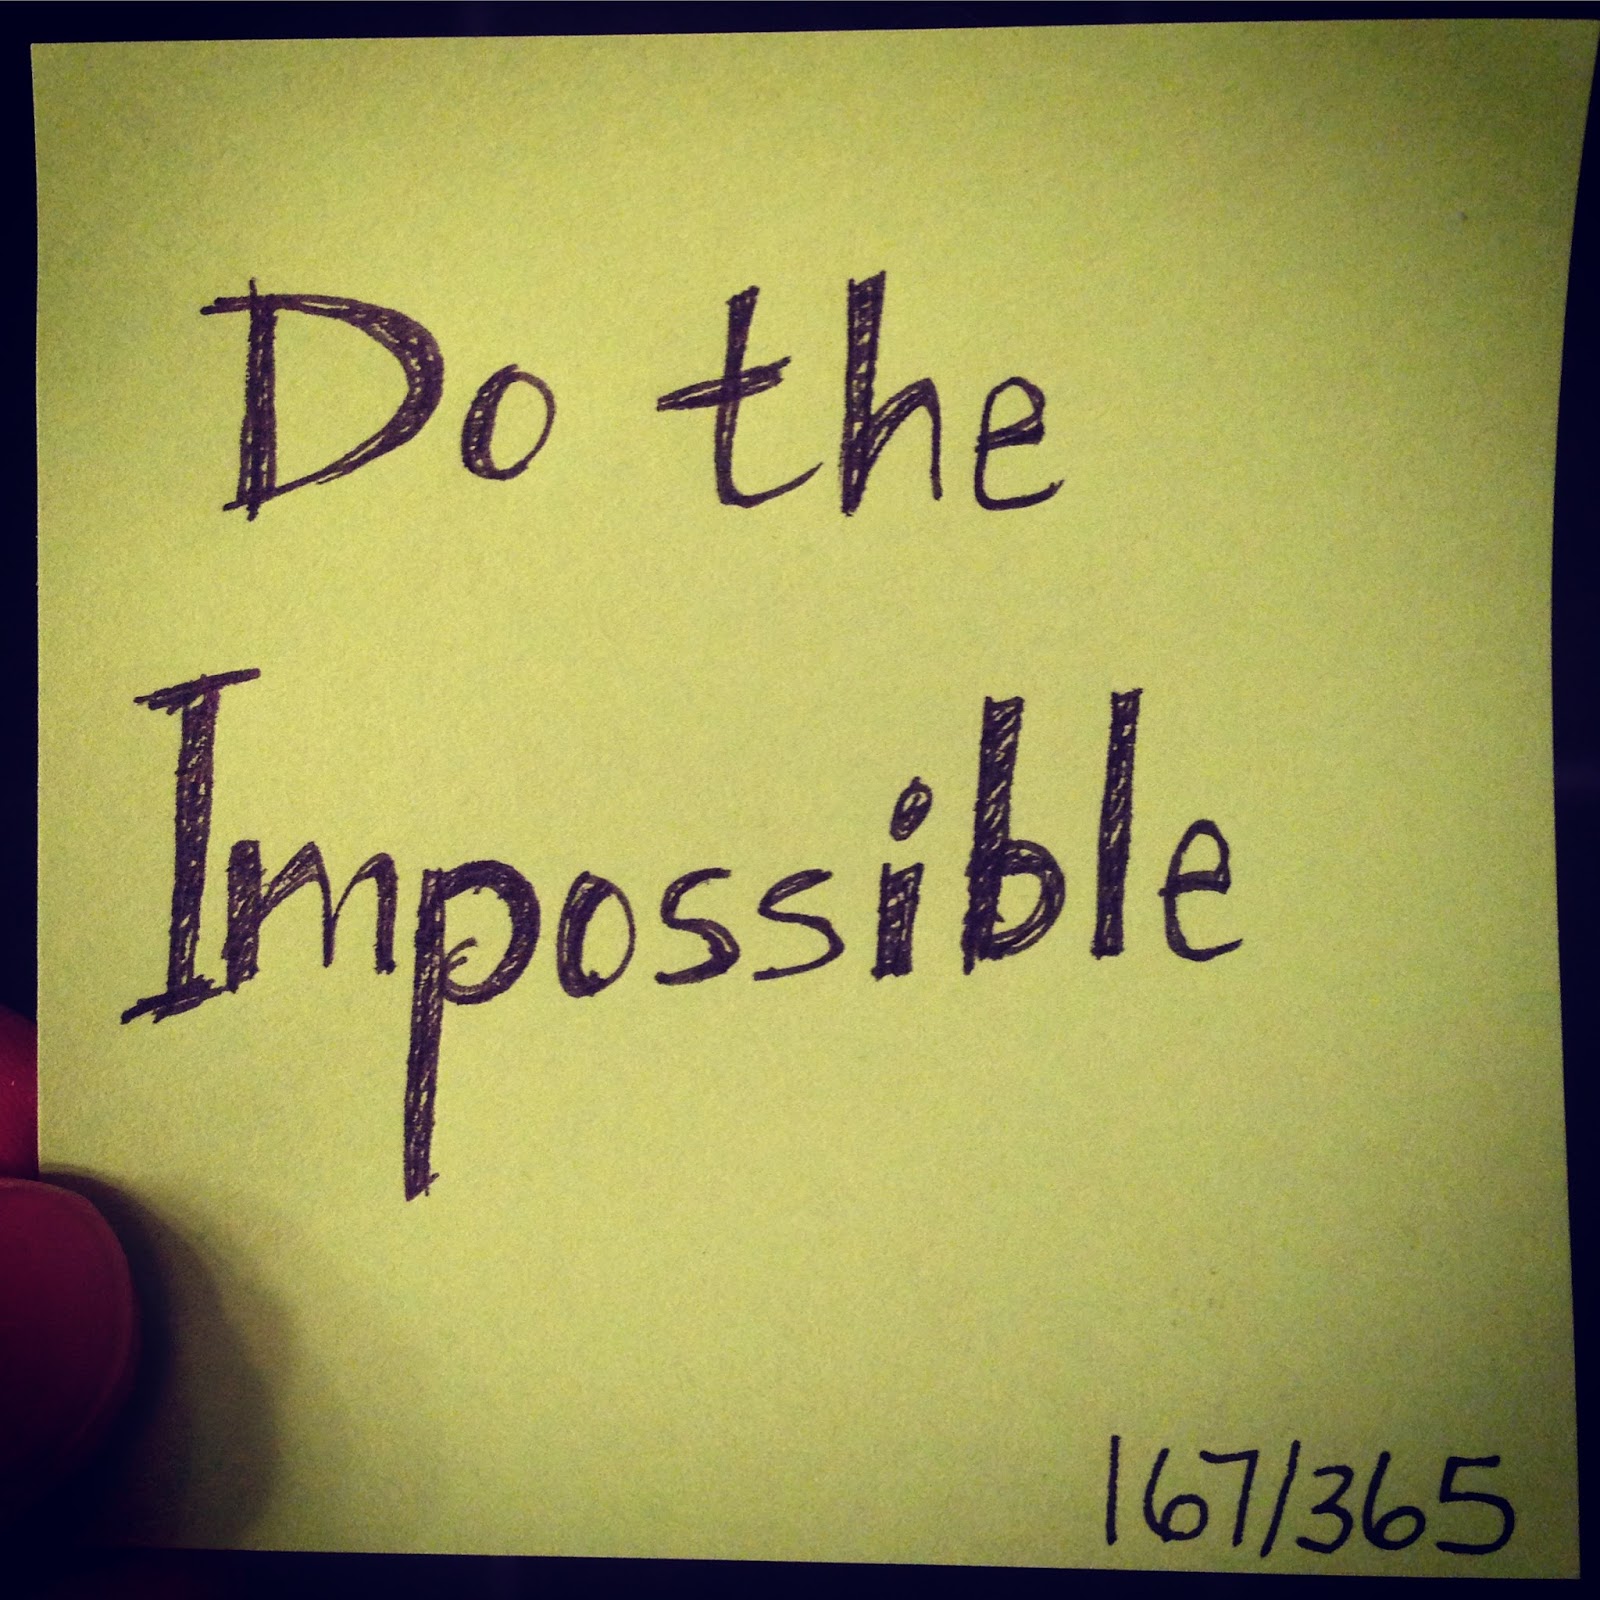 Do the
Impossible
167/365